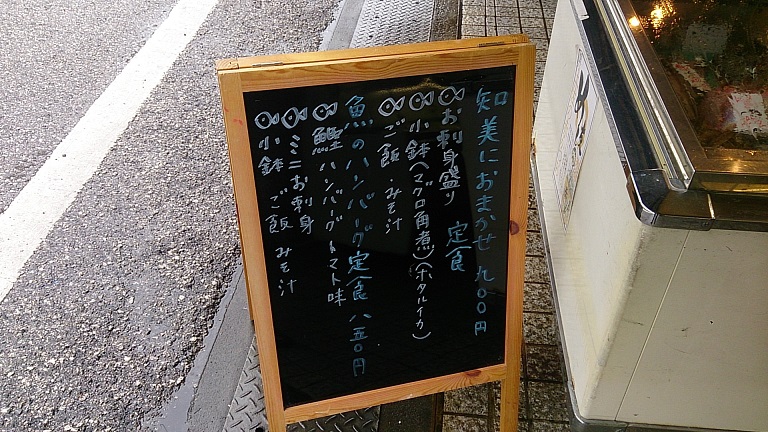 知美におまかせ 九〇〇円
定食
お刺身盛り
小鉢(マグロ角煮)(ホタルイカ)
ご飯 みそ汁
魚のハンバーグ定食 八五〇円
鰹ハンバーグトマト味
ミニお刺身
小鉢 ご飯 みそ汁